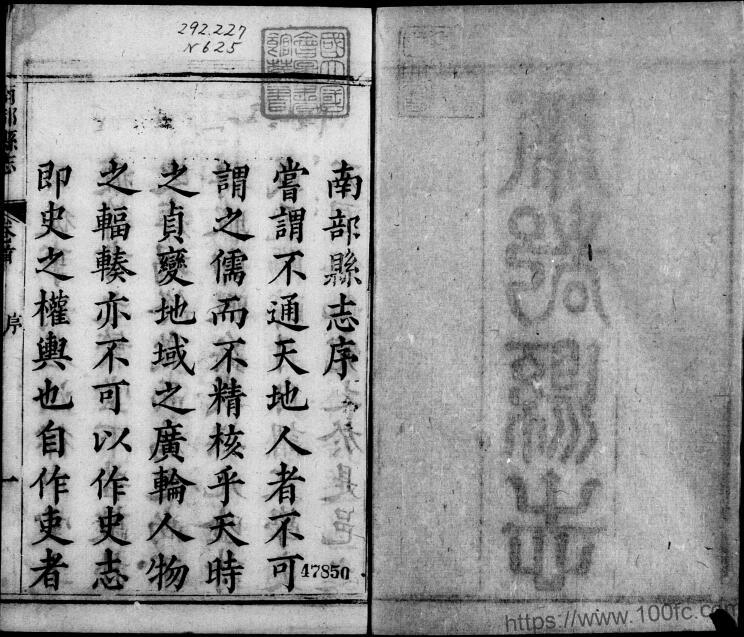 292.227
N625
南部縣志序
嘗謂不通天地人者不可
謂之儒而不精核乎天時
之貞變地域之廣輪人物
之輻輳亦不可以作史志
即史之權輿也自作吏者
南部縣志
卷首
序
一
47850
https://www.100fc.com